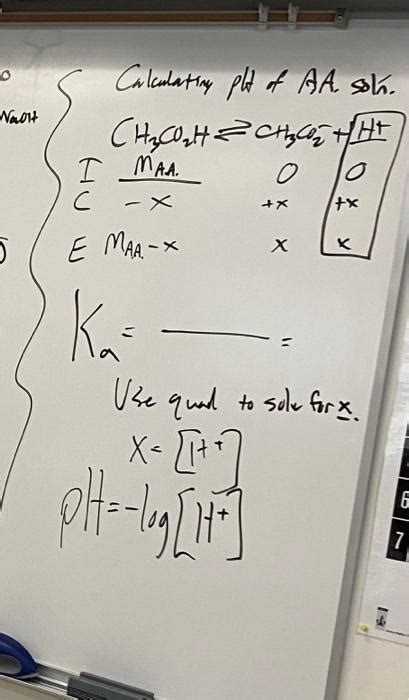 Calculating pH of AA. soln.
NaOH
CH₃CO₂H ⇌ CH₃CO₂⁻ + H⁺
I M_AA. 0 0
C -x +x +x
E M_AA. - x x x
Ka = ———— =
Use quad to solve for x.
x = [H⁺]
pH = -log[H⁺]
6
7